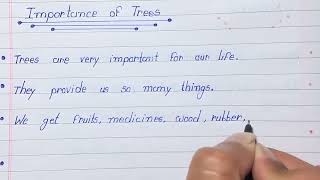 Importance of Trees
• Trees are very important for our life.
• They provide us so many things.
• We get fruits, medicines, wood, rubber,